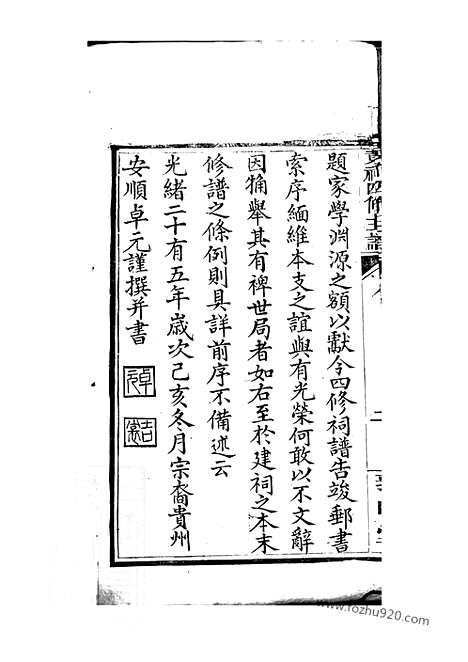 題家學淵源之額以獻今四修祠譜告竣郵書
索序緬維本支之誼與有光榮何敢以不文辭
因觕舉其有裨世局者如右至於建祠之本末
修譜之條例則具詳前序不備述云
光緒二十有五年歲次己亥冬月宗裔貴州
安順卓元謹撰并書
四修主譜
www.fozhu920.com